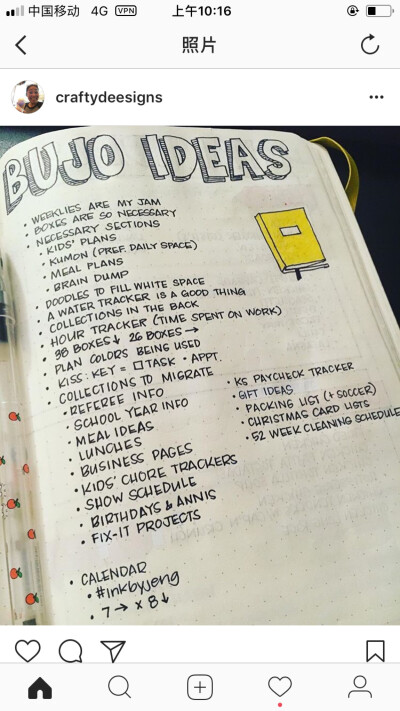 中国移动 4G VPN 上午10:16
照片
craftydeesigns
BUJO IDEAS
• WEEKLIES ARE MY JAM
• BOXES ARE SO NECESSARY
• NECESSARY SECTIONS
• KIDS' PLANS
• KUMON (PREF. DAILY SPACE)
• MEAL PLANS
• BRAIN DUMP
• DOODLES TO FILL WHITE SPACE
• A WATER TRACKER IS A GOOD THING
• COLLECTIONS IN THE BACK
• HOUR TRACKER (TIME SPENT ON WORK)
• 38 BOXES ↓ 26 BOXES →
• PLAN COLORS BEING USED
• KISS: KEY = □ TASK • APPT.
• COLLECTIONS TO MIGRATE
• REFEREE INFO
• SCHOOL YEAR INFO
• MEAL IDEAS
• LUNCHES
• BUSINESS PAGES
• KIDS' CHORE TRACKERS
• SHOW SCHEDULE
• BIRTHDAYS & ANNIS
• FIX-IT PROJECTS
• KS PAYCHECK TRACKER
• GIFT IDEAS
• PACKING LIST (+ SOCCER)
• CHRISTMAS CARD LISTS
• 52 WEEK CLEANING SCHEDULE
• CALENDAR
• #inkbyjeng
• 7 → x 8 ↓